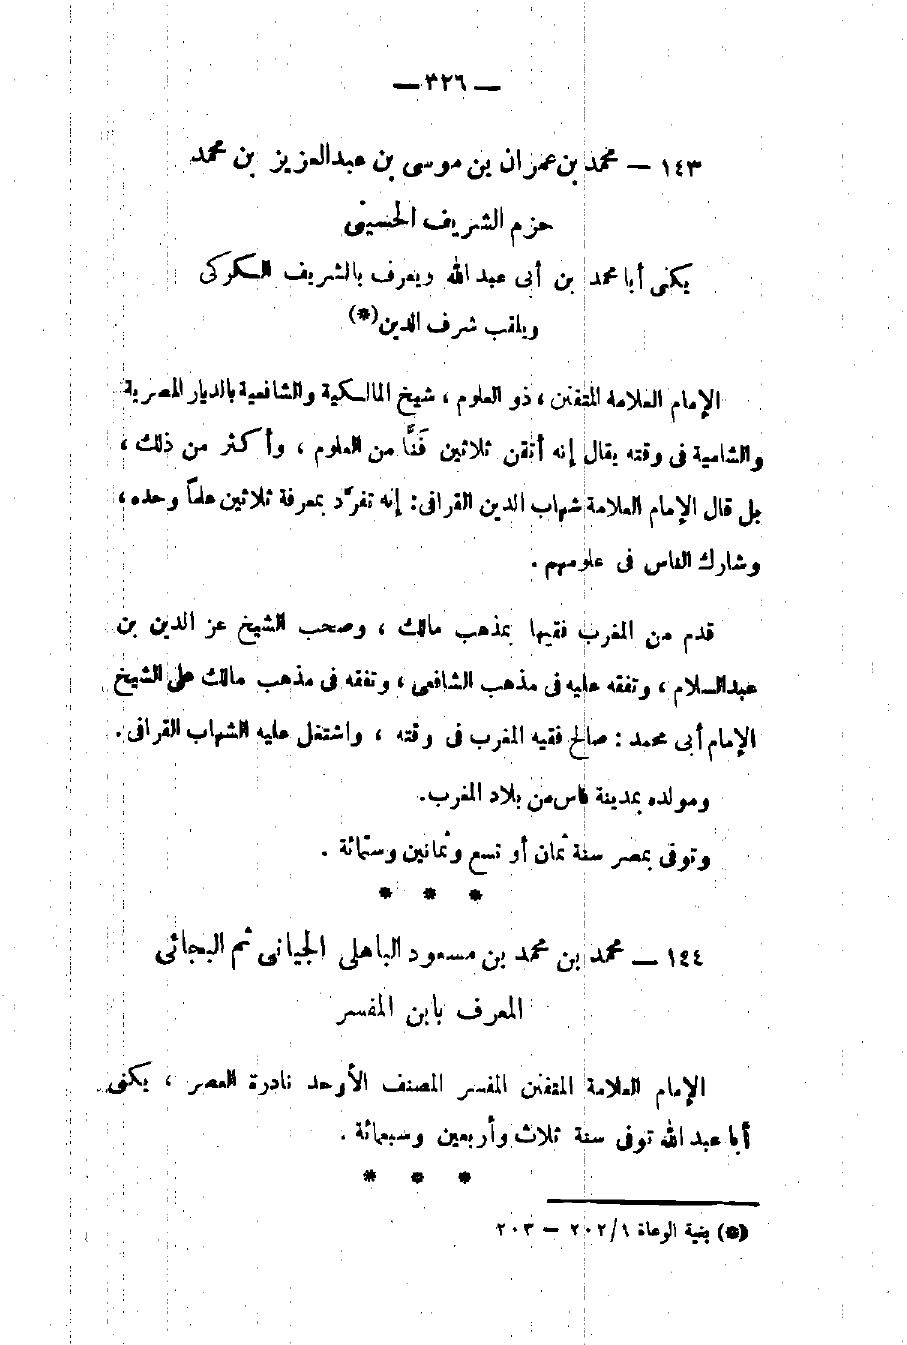 — ٣٢٦ —
١٤٣ — محمد بن عمران بن موسى بن عبدالعزيز بن محمد
حزم الشريف الحسينى
يكنى أبا محمد بن أبى عبد الله ويعرف بالشريف الكركى
ويلقب شرف الدين(*)
الإمام العلامة المتفنن ، ذو العلوم ، شيخ المالكية والشافعية بالديار المصرية
والشامية فى وقته يقال إنه أتقن ثلاثين فَنًّا من العلوم ، وأكثر من ذلك ،
بل قال الإمام العلامة شهاب الدين القرافى: إنه تفرّد بمعرفة ثلاثين علماً وحده ،
وشارك الناس فى علومهم .
قدم من المغرب فقيها بمذهب مالك ، وصحب الشيخ عز الدين بن
عبدالسلام ، وتفقه عليه فى مذهب الشافعى ، وتفقه فى مذهب مالك على الشيخ
الإمام أبى محمد : صالح فقيه المغرب فى وقته ، واشتغل عليه الشهاب القرافى .
ومولده بمدينة فاس من بلاد المغرب.
وتوفى بمصر سنة ثمان أو تسع وثمانين وستمائة .
* * *
١٤٤ — محمد بن محمد بن مسعود الباهلى الجيانى ثم البجائى
المعرف بابن المفسر
الإمام العلامة المتفنن المفسر المصنف الأوحد نادرة العصر ، يكنى
أبا عبد الله توفى سنة ثلاث وأربعين وسبعمائة .
* * *
(*) بغية الوعاة ٢٠٢/١ — ٢٠٣